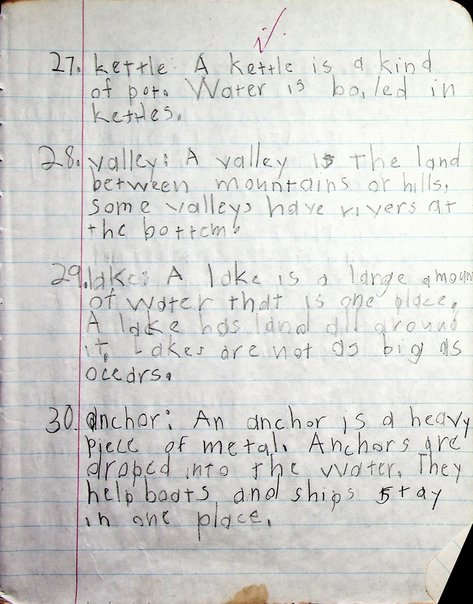 27. kettle: A kettle is a kind
of pot. Water is boiled in
kettles.
28. valley: A valley is the land
between mountains or hills,
some valleys have rivers at
the bottem.
29. lake: A lake is a large amoun
of water that is one place.
A lake has land all around
it. Lakes are not as big as
oceans.
30. anchor: An anchor is a heavy
piece of metal. Anchors are
droped into the water. They
help boats and ships stay
in one place.